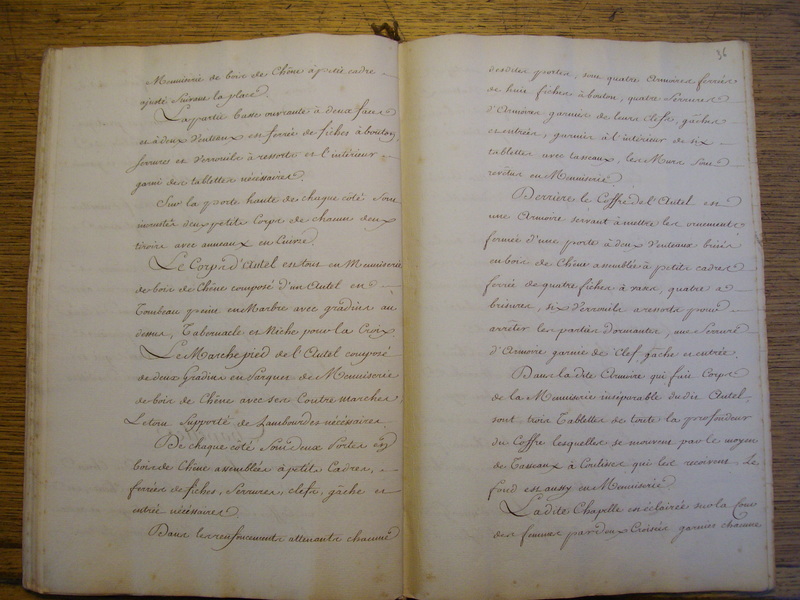 Menuiserie de bois de Chêne à petit cadre
ajusté suivant la place.
La partie basse ouvrante à deux faces
et à deux Venteaux est ferrée de fiches à bouton,
serrures et Verrouils à ressorts et l'intérieur
garni des tablettes nécessaires.
Sur la porte haute de chaque côté sont
montés deux petits Corps de chacun deux
tiroirs avec anneaux en Cuivre.
Le Corps d'Autel est tout en Menuiserie
de bois de Chêne composé d'un Autel en
Tombeau peint en Marbre avec gradins au
dessus, Tabernacle et Niche pour la Croix.
Le Marche pied de l'Autel composé
de deux Gradins en Parquet de Menuiserie
de bois de Chêne avec ses Contre marches
Le tout Supporté de Lambourdes nécessaires.
De chaque côté Sont deux Portes
bois de Chêne assemblées à petits Cadres,
ferrées de fiches, Serrures, clefs, gâche et
entrée nécessaires
Dans les renfoncements attenants chacune
36
desdites portes, sont quatre Armoires ferrées
de huit fiches à bouton, quatre Serrures
d'Armoire garnies de leurs clefs, gâches
et entrées, garnies à l'intérieur de six
tablettes avec tasseaux, les Murs sont
revêtus en Menuiserie
Derrière le Coffre de l'Autel est
une Armoire servant à mettre les ornements
fermée d'une porte à deux Venteaux brisés
en bois de Chêne assemblée à petits cadres
ferrée de quatre fiches à vases, quatre a
brisures, six Verrouils a ressorts pour
arrêter les parties dormantes, une Serrure
d'Armoire garnie de Clef, gâche et entrée.
Dans la dite Armoire qui fait Corps
de la Menuiserie inséparable dudit Autel,
sont trois Tablettes de toute la profondeur
du Coffre lesquelles se meuvent par le moyen
de Tasseaux à Coulisses qui les reçoivent, Le
fond est aussy en Menuiserie
La dite Chapelle est éclairée sur la Cour
des femmes par deux Croisées garnies chacune